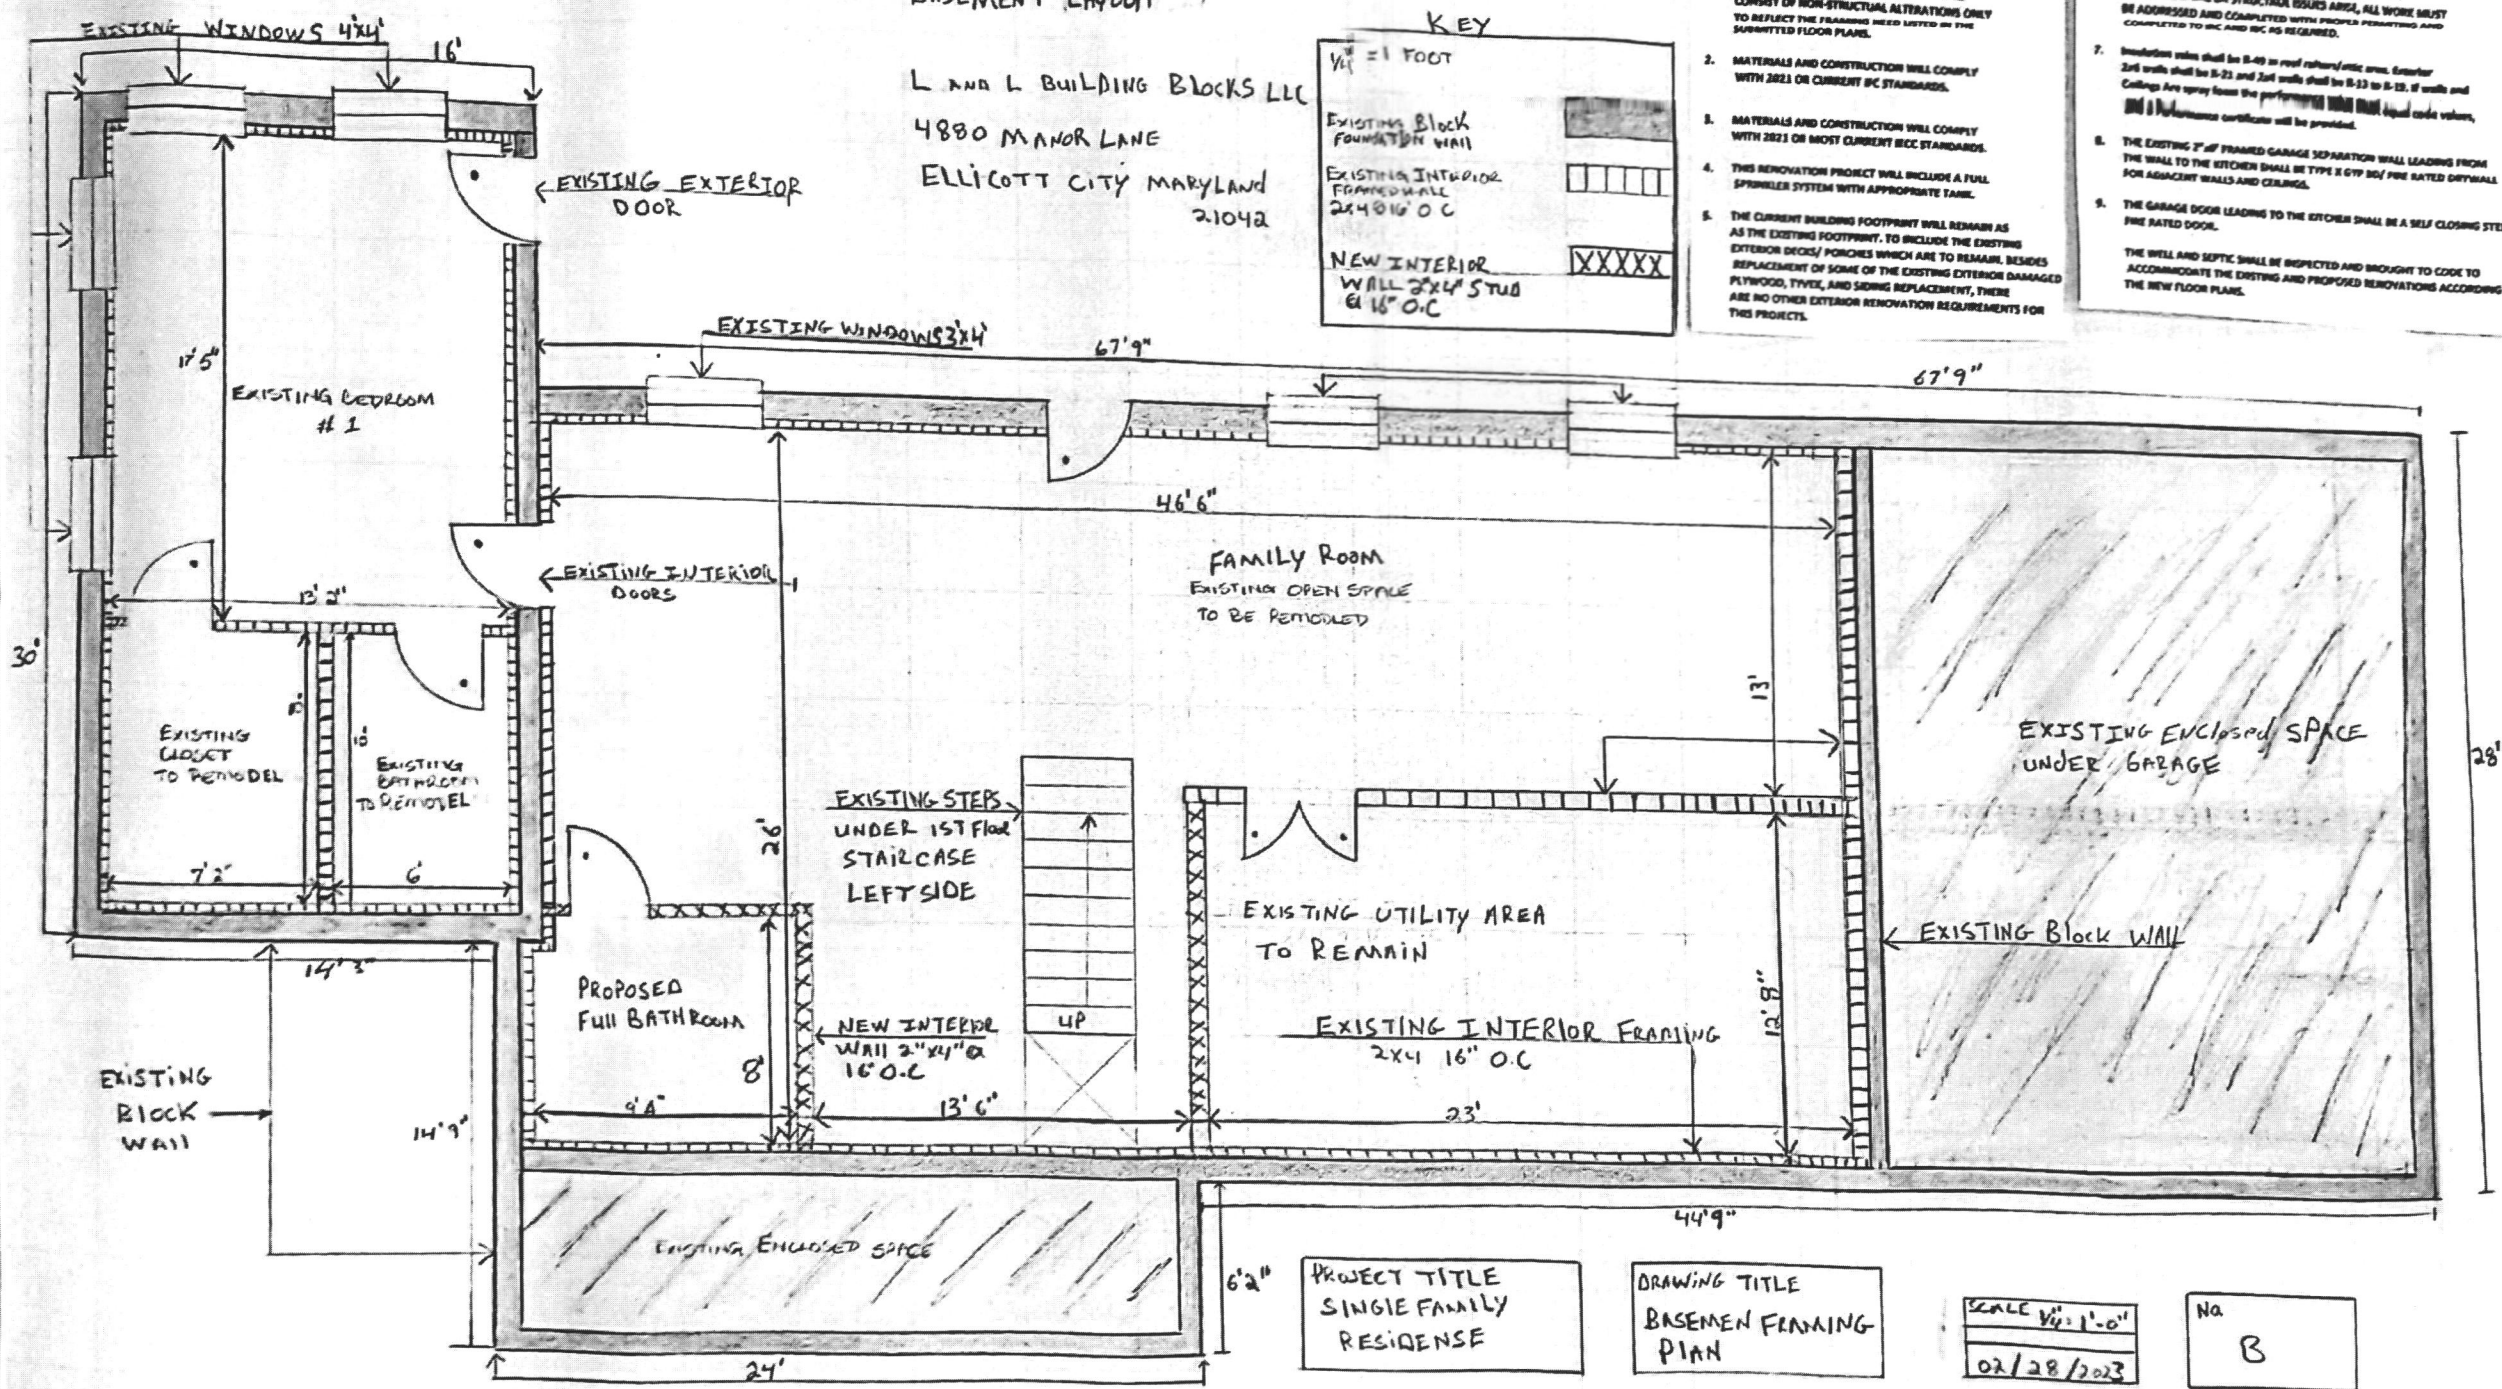 BASEMENT LAYOUT
L AND L BUILDING BLOCKS LLC
4880 MANOR LANE
ELLICOTT CITY MARYLAND
21042
KEY
1/4" = 1 FOOT
EXISTING Block
FOUNDATION WAll
EXISTING INTERIOR
FRAMED WALL
2x4 @ 16" O C
NEW INTERIOR
WALL 2"X4" STUD
@ 16" O.C
XXXXX
CONSIST OF NON-STRUCTUAL ALTERATIONS ONLY
TO REFLECT THE FRAMING NEED LISTED IN THE
SUBMITTED FLOOR PLANS.
2. MATERIALS AND CONSTRUCTION WILL COMPLY
WITH 2021 OR CURRENT IFC STANDARDS.
3. MATERIALS AND CONSTRUCTION WILL COMPLY
WITH 2021 OR MOST CURRENT IECC STANDARDS.
4. THIS RENOVATION PROJECT WILL INCLUDE A FULL
SPRINKLER SYSTEM WITH APPROPRIATE TANK.
5. THE CURRENT BUILDING FOOTPRINT WILL REMAIN AS
AS THE EXISTING FOOTPRINT. TO INCLUDE THE EXISTING
EXTERIOR DECKS/ PORCHES WHICH ARE TO REMAIN. BESIDES
REPLACEMENT OF SOME OF THE EXISTING EXTERIOR DAMAGED
PLYWOOD, TYVEK, AND SIDING REPLACEMENT, THERE
ARE NO OTHER EXTERIOR RENOVATION REQUIREMENTS FOR
THIS PROJECTS.
STRUCTURAL ISSUES ARISE, ALL WORK MUST
BE ADDRESSED AND COMPLETED WITH PROPER PERMITTING AND
COMPLETED TO IRC AND IBC AS REQUIRED.
7. Insulation values shall be R-49 in roof rafters/attic area. Exterior
2x6 walls shall be R-21 and 2x4 walls shall be R-13 to R-19. If walls and
Ceilings Are spray foam the performance equal code values,
and a Performance certificate will be provided.
8. THE EXISTING FRAMED GARAGE SEPARATION WALL LEADING FROM
THE WALL TO THE KITCHEN SHALL BE TYPE X GYP BD/ FIRE RATED DRYWALL
FOR ADJACENT WALLS AND CEILINGS.
9. THE GARAGE DOOR LEADING TO THE KITCHEN SHALL BE A SELF CLOSING STE
FIRE RATED DOOR.
THE WELL AND SEPTIC SHALL BE INSPECTED AND BROUGHT TO CODE TO
ACCOMMODATE THE EXISTING AND PROPOSED RENOVATIONS ACCORDING
THE NEW FLOOR PLANS.
EXISTING WINDOWS 4'X4'
16'
EXISTING EXTERIOR
DOOR
17'5"
EXISTING BEDROOM
# 1
EXISTING WINDOWS 3'X4'
67'9"
67'9"
46'6"
EXISTING INTERIOR
DOORS
FAMILY ROOM
EXISTING OPEN SPACE
TO BE REMODLED
13'2"
30'
13'
28'
EXISTING
CLOSET
TO REMODEL
10'
10'
EXISTING
BATHROOM
TO REMODEL
7'2"
6'
26'
EXISTING STEPS
UNDER 1ST Floor
STAIRCASE
LEFT SIDE
UP
EXISTING UTILITY AREA
TO REMAIN
EXISTING ENClosed SPACE
UNDER GARAGE
EXISTING Block WALL
14'3"
PROPOSED
FUll BATHROOM
8'
9'4"
NEW INTERIOR
WAll 2"x4" @
16" O.C
13'6"
EXISTING INTERIOR FRAMING
2x4 16" O.C
12'8"
23'
EXISTING
BlOCK
WAll
14'9"
EXISTING ENCLOSED SPACE
6'2"
24'
44'9"
28'
PROJECT TITLE
SINGlE FAMILY
RESIDENSE
DRAWING TITLE
BASEMEN FRAMING
PlAN
SCALE 1/4": 1'-0"
02/28/2023
No
B